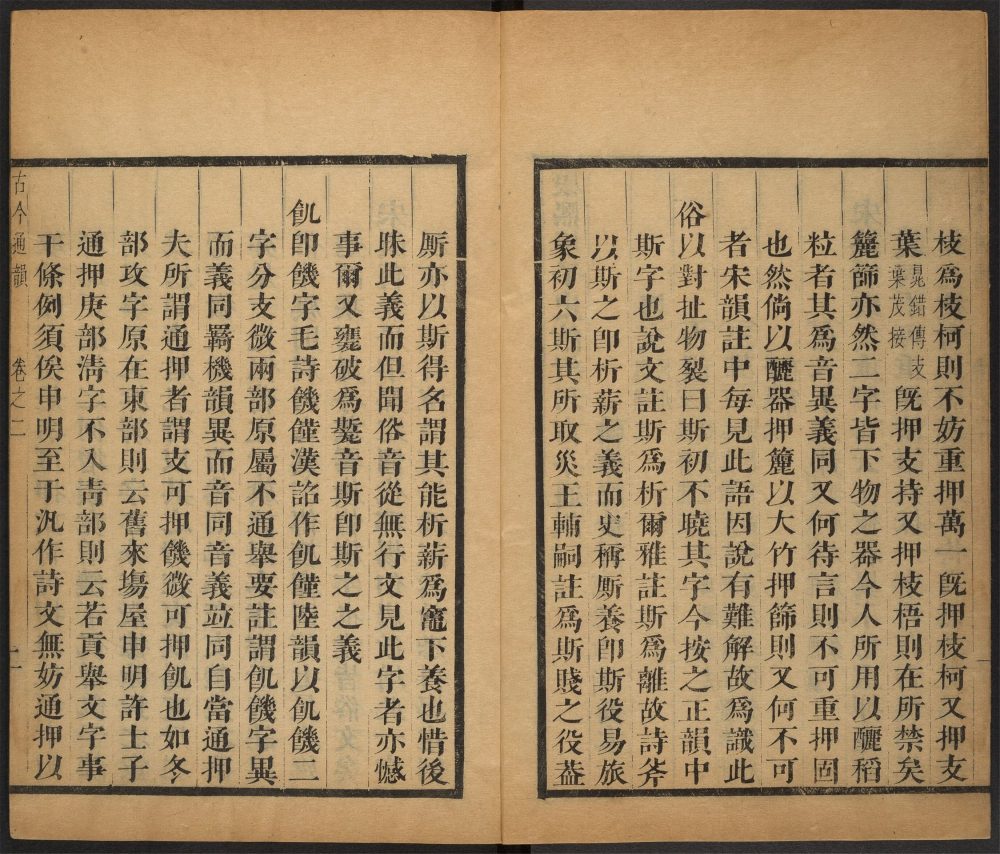 枝爲枝柯則不妨重押萬一旣押枝柯又押支
葉晁錯傳支葉茂接旣押支持又押枝梧則在所禁矣
簏篩亦然二字皆下物之器今人所用以釃稻
粒者其爲音異義同又何待言則不可重押固
也然倘以釃器押簏以大竹押篩則又何不可
者宋韻註中每見此語因說有難解故爲識此
俗以對扯物裂曰斯初不曉其字今按之正韻中
斯字也說文註斯爲析爾雅註斯爲離故詩斧
以斯之卽析薪之義而史稱厮養卽斯役易旅
象初六斯其所取災王輔嗣註爲斯賤之役葢
厮亦以斯得名謂其能析薪爲竈下養也惜後
昧此義而但聞俗音從無行文見此字者亦憾
事爾又甕破爲㽄音斯卽斯之之義
飢卽饑字毛詩饑饉漢詔作飢饉陸韻以飢饑二
字分支微兩部原屬不通舉要註謂飢饑字異
而義同羇機韻異而音同音義竝同自當通押
夫所謂通押者謂支可押饑微可押飢也如冬
部攻字原在東部則云舊來塲屋申明許士子
通押庚部淸字不入靑部則云若貢舉文字事
干條例須俟申明至于汎作詩文無妨通押以
古今通韻
卷之二
二